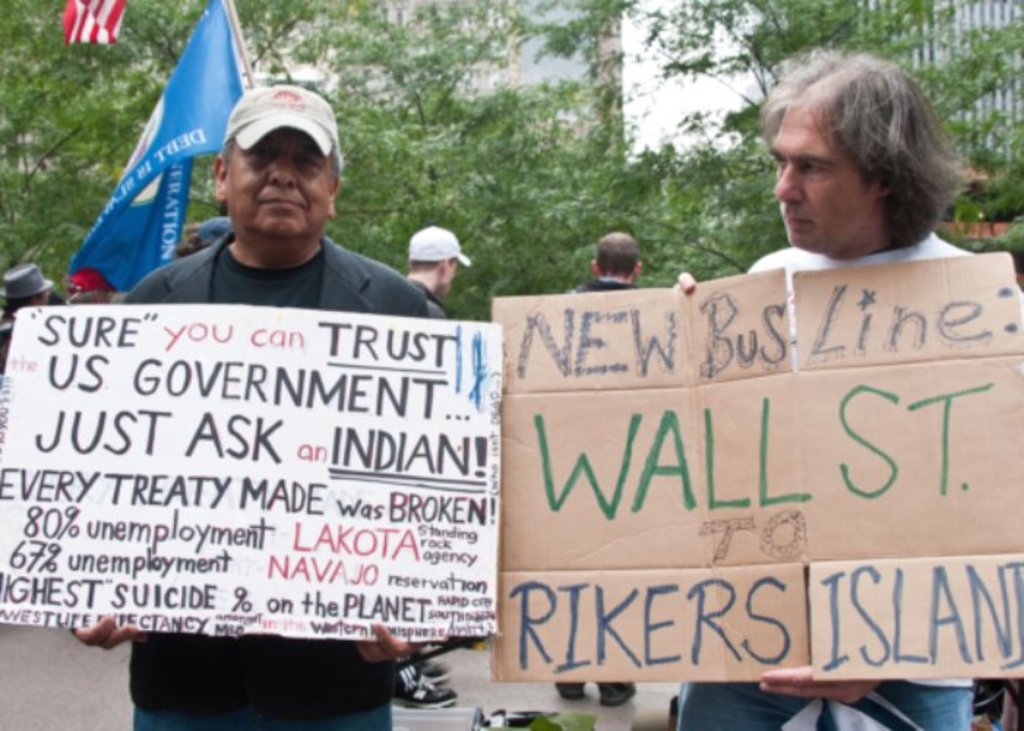 DEBT IS
"SURE" you can TRUST!!
the US GOVERNMENT...
JUST ASK an INDIAN!
EVERY TREATY MADE was BROKEN!
80% unemployment LAKOTA Standing rock agency
67% unemployment NAVAJO reservation
HIGHEST SUICIDE % on the PLANET RAPID CITY SOUTH
EXPECTANCY in the western hemisphere
NEW BUS Line:
WALL ST.
TO
RIKERS ISLAND